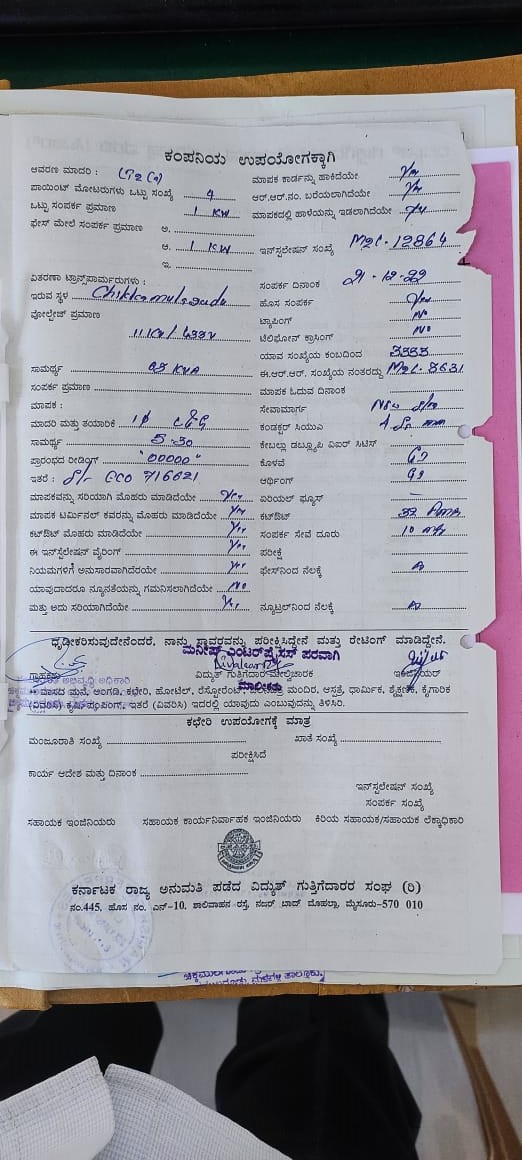 ಕಂಪನಿಯ ಉಪಯೋಗಕ್ಕಾಗಿ
ಆವರಣ ಮಾದರಿ : ಮಾಪಕ ಕಾರ್ಡನ್ನು ಹಾಕಿದೆಯೇ Yes
ಪಾಯಿಂಟ್ ಮೋಟರುಗಳು ಒಟ್ಟು ಸಂಖ್ಯೆ 4 ಆರ್.ಆರ್.ನಂ. ಬರೆಯಲಾಗಿದೆಯೇ Yes
ಒಟ್ಟು ಸಂಪರ್ಕ ಪ್ರಮಾಣ 1 KW ಮಾಪಕದಲ್ಲಿ ಹಾಳೆಯನ್ನು ಇಡಲಾಗಿದೆಯೇ
ಫೇಸ್ ಮೇಲೆ ಸಂಪರ್ಕ ಪ್ರಮಾಣ ಅ.
ಆ. 1 KW ಇನ್‌ಸ್ಟಲೇಷನ್ ಸಂಖ್ಯೆ M2C-12864
ಇ.
ವಿತರಣಾ ಟ್ರಾನ್ಸ್‌ಪಾರ್ಮರುಗಳು : ಸಂಪರ್ಕ ದಿನಾಂಕ 21-12-22
ಇರುವ ಸ್ಥಳ ಹೊಸ ಸಂಪರ್ಕ Yes
ವೋಲ್ಟೇಜ್ ಪ್ರಮಾಣ ಟ್ಯಾಪಿಂಗ್ No
11 KV / 433V ಟೆಲಿಫೋನ್ ಕ್ರಾಸಿಂಗ್ No
ಯಾವ ಸಂಖ್ಯೆಯ ಕಂಬದಿಂದ
ಸಾಮರ್ಥ್ಯ KVA ಈ.ಆರ್.ಆರ್. ಸಂಖ್ಯೆಯ ನಂತರದ್ದು M2C-8631
ಸಂಪರ್ಕ ಪ್ರಮಾಣ ಮಾಪಕ ಓದುವ ದಿನಾಂಕ
ಮಾಪಕ : ಸೇವಾಮಾರ್ಗ
ಮಾದರಿ ಮತ್ತು ತಯಾರಿಕೆ 1φ ಕಂಡಕ್ಟರ್ ಸಿಯುಎ
ಸಾಮರ್ಥ್ಯ 5-30 ಕೇಬಲ್ಲು ಡಬ್ಲ್ಯೂಪಿ ವಿಐರ್ ಸಿಟಿಸ್
ಪ್ರಾರಂಭದ ರೀಡಿಂಗ್ "00000" ಕೊಳವೆ GI
ಇತರೆ : S/- CCO 716621 ಆರ್ಥಿಂಗ್ GI
ಮಾಪಕವನ್ನು ಸರಿಯಾಗಿ ಮೊಹರು ಮಾಡಿದೆಯೇ Yes ಏರಿಯಲ್ ಫ್ಯೂಸ್ —
ಮಾಪಕ ಟರ್ಮಿನಲ್ ಕವರನ್ನು ಮೊಹರು ಮಾಡಿದೆಯೇ Yes ಕಟ್‌ಔಟ್ 32 Amp
ಕಟ್‌ಔಟ್ ಮೊಹರು ಮಾಡಿದೆಯೇ Yes ಸಂಪರ್ಕ ಸೇವೆ ದೂರು 10
ಈ ಇನ್‌ಸ್ಟಲೇಷನ್ ವೈರಿಂಗ್ Yes ಪರೀಕ್ಷೆ
ನಿಯಮಗಳಿಗೆ ಅನುಸಾರವಾಗಿದೆಯೇ Yes ಫೇಸ್‌ನಿಂದ ನೆಲಕ್ಕೆ
ಯಾವುದಾದರೂ ನ್ಯೂನತೆಯನ್ನು ಗಮನಿಸಲಾಗಿದೆಯೇ No
ಮತ್ತು ಅದು ಸರಿಯಾಗಿದೆಯೇ Yes ನ್ಯೂಟ್ರಲ್‌ನಿಂದ ನೆಲಕ್ಕೆ
ಧೃಡೀಕರಿಸುವುದೇನೆಂದರೆ, ನಾನು ಸ್ಥಾವರವನ್ನು ಪರೀಕ್ಷಿಸಿದ್ದೇನೆ ಮತ್ತು ರೇಟಿಂಗ್ ಮಾಡಿದ್ದೇನೆ.
ಮನೀಷ್ ಎಂಟರ್‌ಪ್ರೈಸಸ್ ಪರವಾಗಿ
ಗ್ರಾಹಕರು ವಿದ್ಯುತ್ ಗುತ್ತಿಗೆದಾರ ಮೇಲ್ವಿಚಾರಕ ಇಂಜಿನಿಯರ್
ಮಾಲೀಕರು
ವಾಸದ ಮನೆ, ಅಂಗಡಿ, ಕಛೇರಿ, ಹೋಟೆಲ್, ರೆಸ್ಟೋರೆಂಟ್, ಮಂದಿರ, ಆಸ್ಪತ್ರೆ, ಧಾರ್ಮಿಕ, ಶೈಕ್ಷಣಿಕ, ಕೈಗಾರಿಕ
(ವಿವರಿಸಿ) ಕೃಷಿ ಪಂಪಿಂಗ್, ಇತರೆ (ವಿವರಿಸಿ) ಇದರಲ್ಲಿ ಯಾವುದು ಎಂಬುವುದನ್ನು ತಿಳಿಸಿರಿ.
ಕಛೇರಿ ಉಪಯೋಗಕ್ಕೆ ಮಾತ್ರ
ಮಂಜೂರಾತಿ ಸಂಖ್ಯೆ ಖಾತೆ ಸಂಖ್ಯೆ
ಪರೀಕ್ಷಿಸಿದೆ
ಕಾರ್ಯ ಆದೇಶ ಮತ್ತು ದಿನಾಂಕ
ಇನ್‌ಸ್ಟಲೇಷನ್ ಸಂಖ್ಯೆ
ಸಂಪರ್ಕ ಸಂಖ್ಯೆ
ಸಹಾಯಕ ಇಂಜಿನಿಯರು ಸಹಾಯಕ ಕಾರ್ಯನಿರ್ವಾಹಕ ಇಂಜಿನಿಯರು ಕಿರಿಯ ಸಹಾಯಕ/ಸಹಾಯಕ ಲೆಕ್ಕಾಧಿಕಾರಿ
ಕರ್ನಾಟಕ ರಾಜ್ಯ ಅನುಮತಿ ಪಡೆದ ವಿದ್ಯುತ್ ಗುತ್ತಿಗೆದಾರರ ಸಂಘ (ರಿ)
ನಂ.445, ಹೊಸ ನಂ. ಎನ್-10, ಶಾಲಿವಾಹನ ರಸ್ತೆ, ನಜರ್ ಬಾದ್ ಮೊಹಲ್ಲಾ, ಮೈಸೂರು-570 010